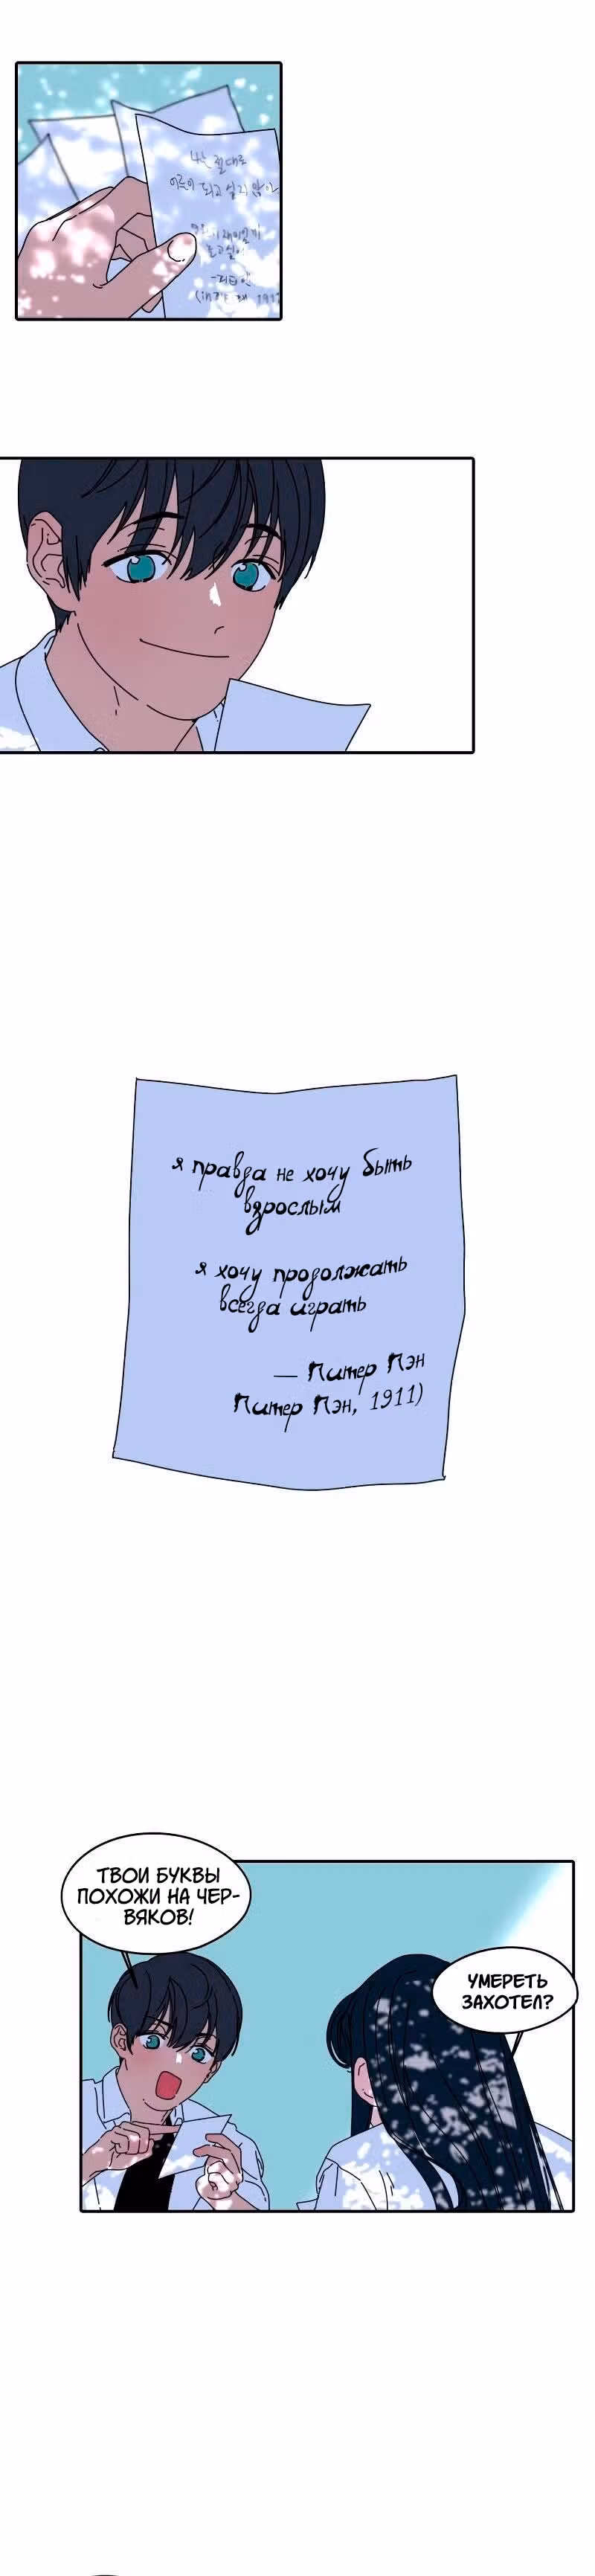 나는 절대로
어른이 되고 싶지 않아
놀고싶어
я правда не хочу быть
взрослым
я хочу продолжать
всегда играть
— Питер Пэн
Питер Пэн, 1911)
ТВОИ БУКВЫ
ПОХОЖИ НА ЧЕР-
ВЯКОВ!
УМЕРЕТЬ
ЗАХОТЕЛ?